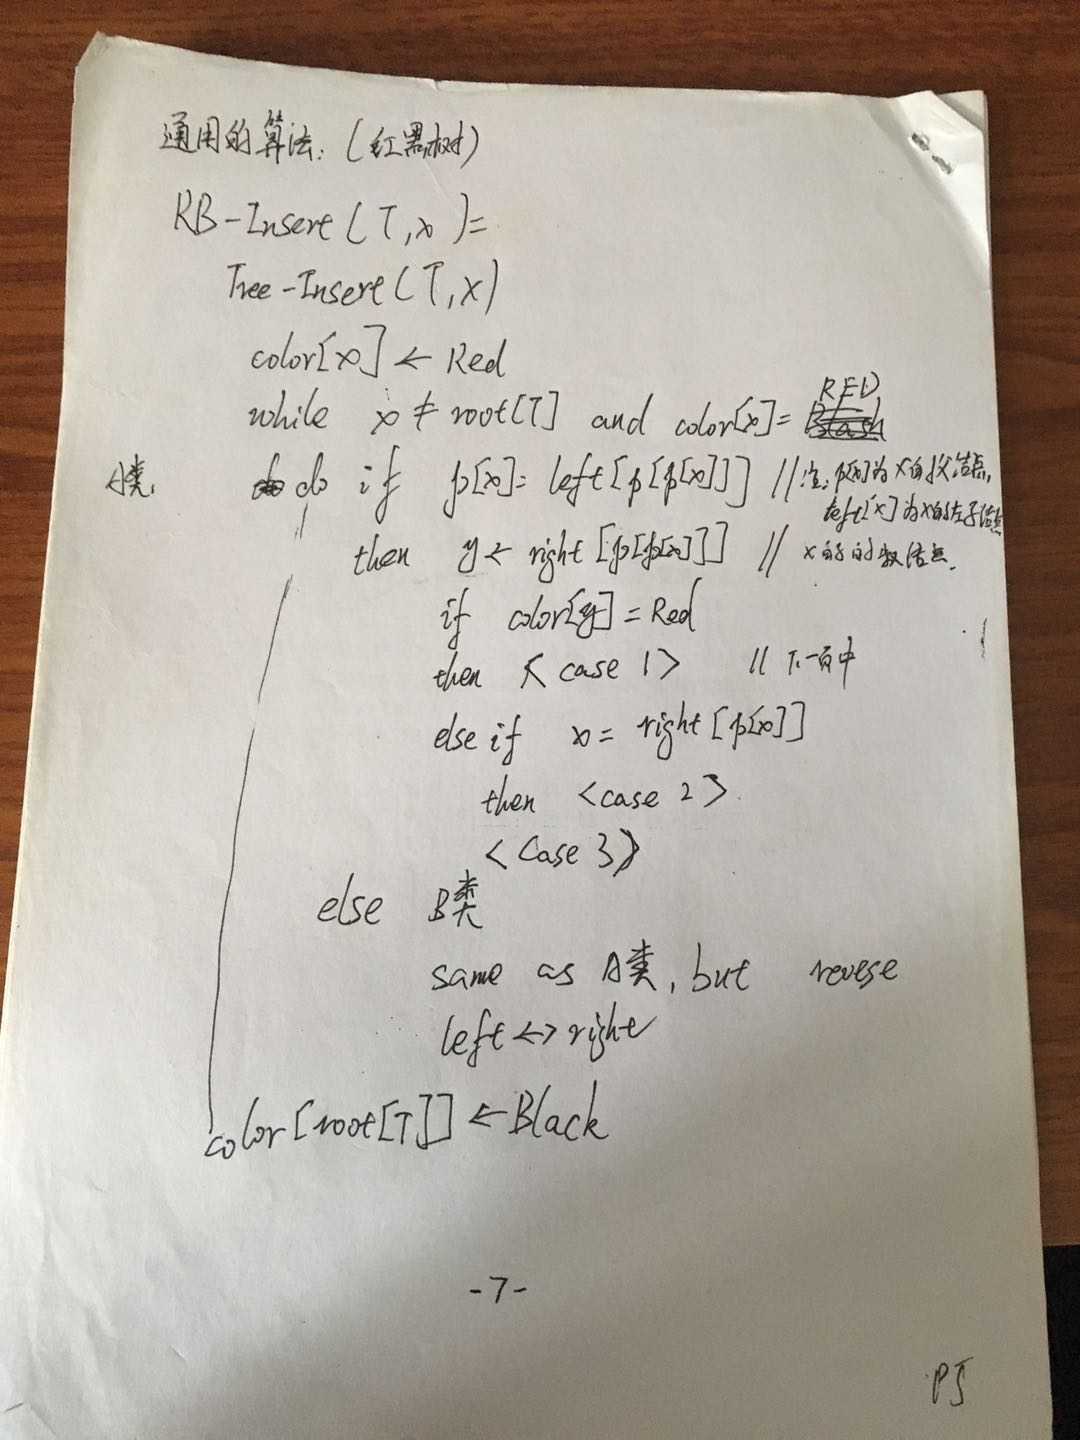 通用的算法：(红黑树)
RB-Insert(T,x)=
Tree-Insert(T,x)
color[x] ← Red
while x ≠ root[T] and color[x]= RED
A类. do if p[x]= left[p[p[x]]] //注：p[x]为x的父结点,
left[x]为x的左子结点
then y ← right[p[p[x]]] // x的叔结点.
if color[y]=Red
then <case 1> //下一页中
else if x= right[p[x]]
then <case 2>
<Case 3>
else B类
same as A类, but revese
left <-> right
color[root[T]] ← Black
-7-